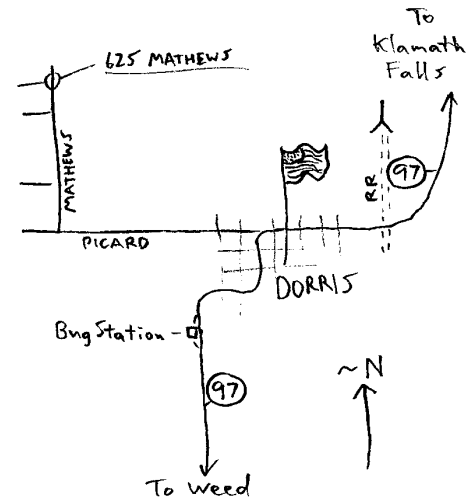 To
Klamath
Falls
625 MATHEWS
MATHEWS
97
RR
PICARD
DORRIS
Bug Station
97
~N
To Weed